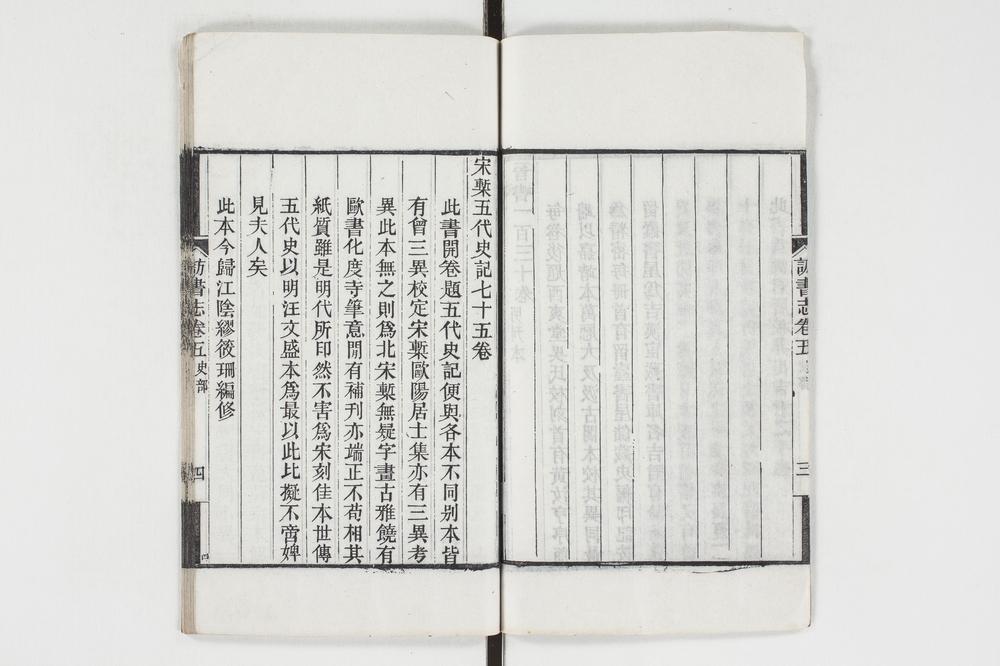 訪書志卷五
三
宋槧五代史記七十五卷
此書開卷題五代史記便與各本不同別本皆
有曾三異校定宋槧歐陽居士集亦有三異考
異此本無之則爲北宋槧無疑字畫古雅饒有
歐書化度寺筆意閒有補刊亦端正不苟相其
紙質雖是明代所印然不害爲宋刻佳本世傳
五代史以明汪文盛本爲最以此比擬不啻婢
見夫人矣
此本今歸江陰繆筱珊編修
訪書志卷五 史部
四